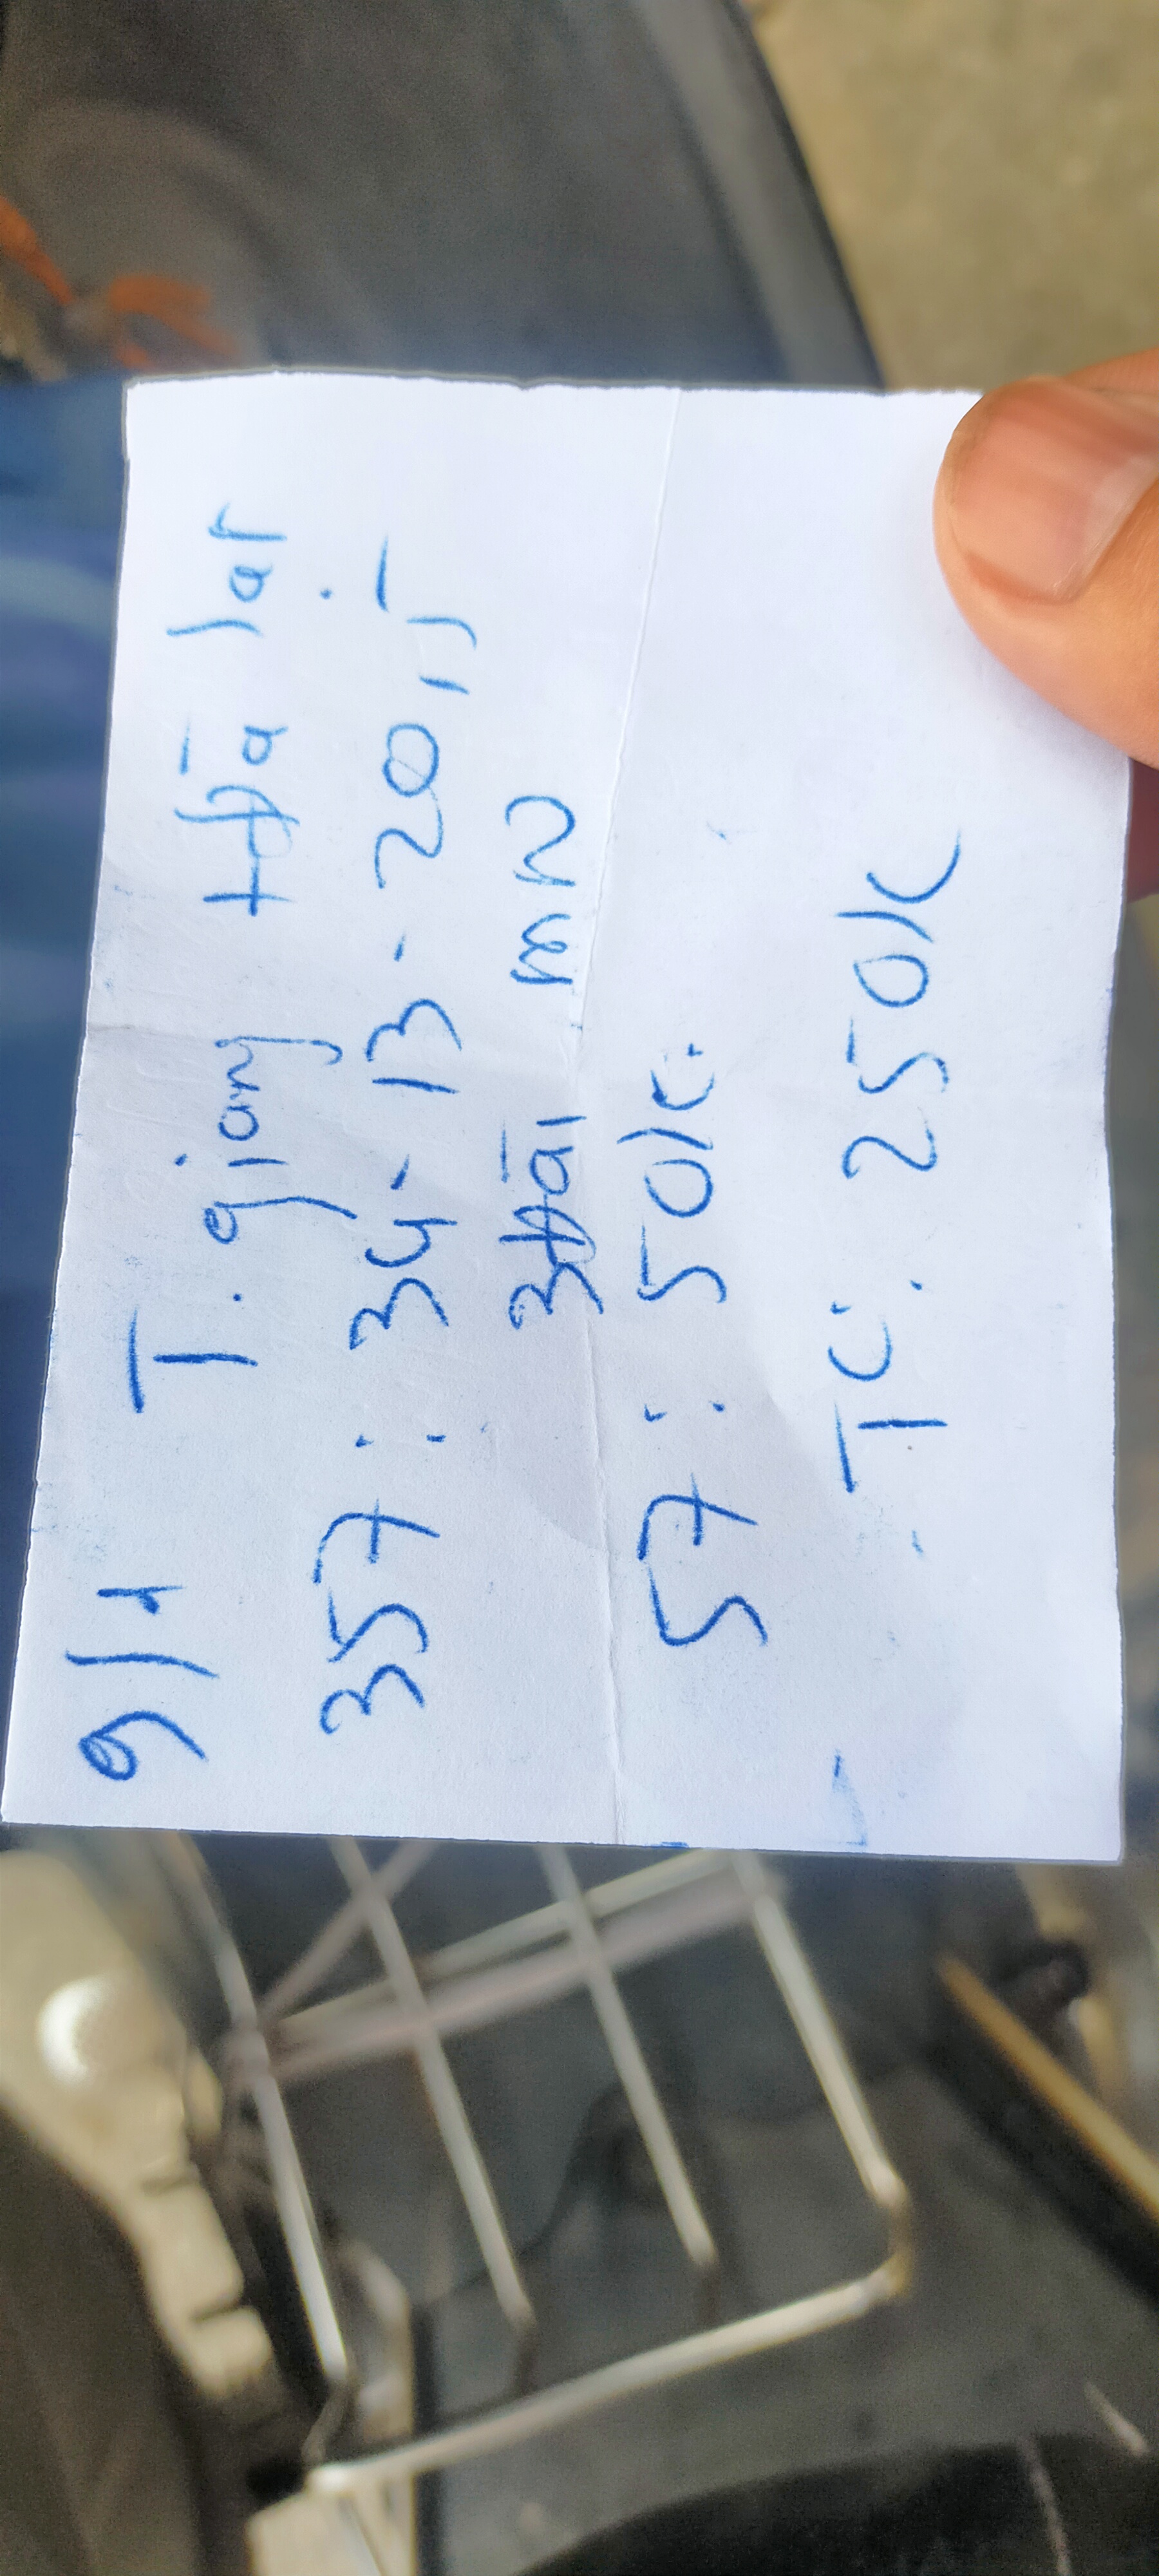 9/4 T. giang trả lại
357 : 34 - 13 - 20 lị
3 đài MN
57 : 50K.
TC: 250K